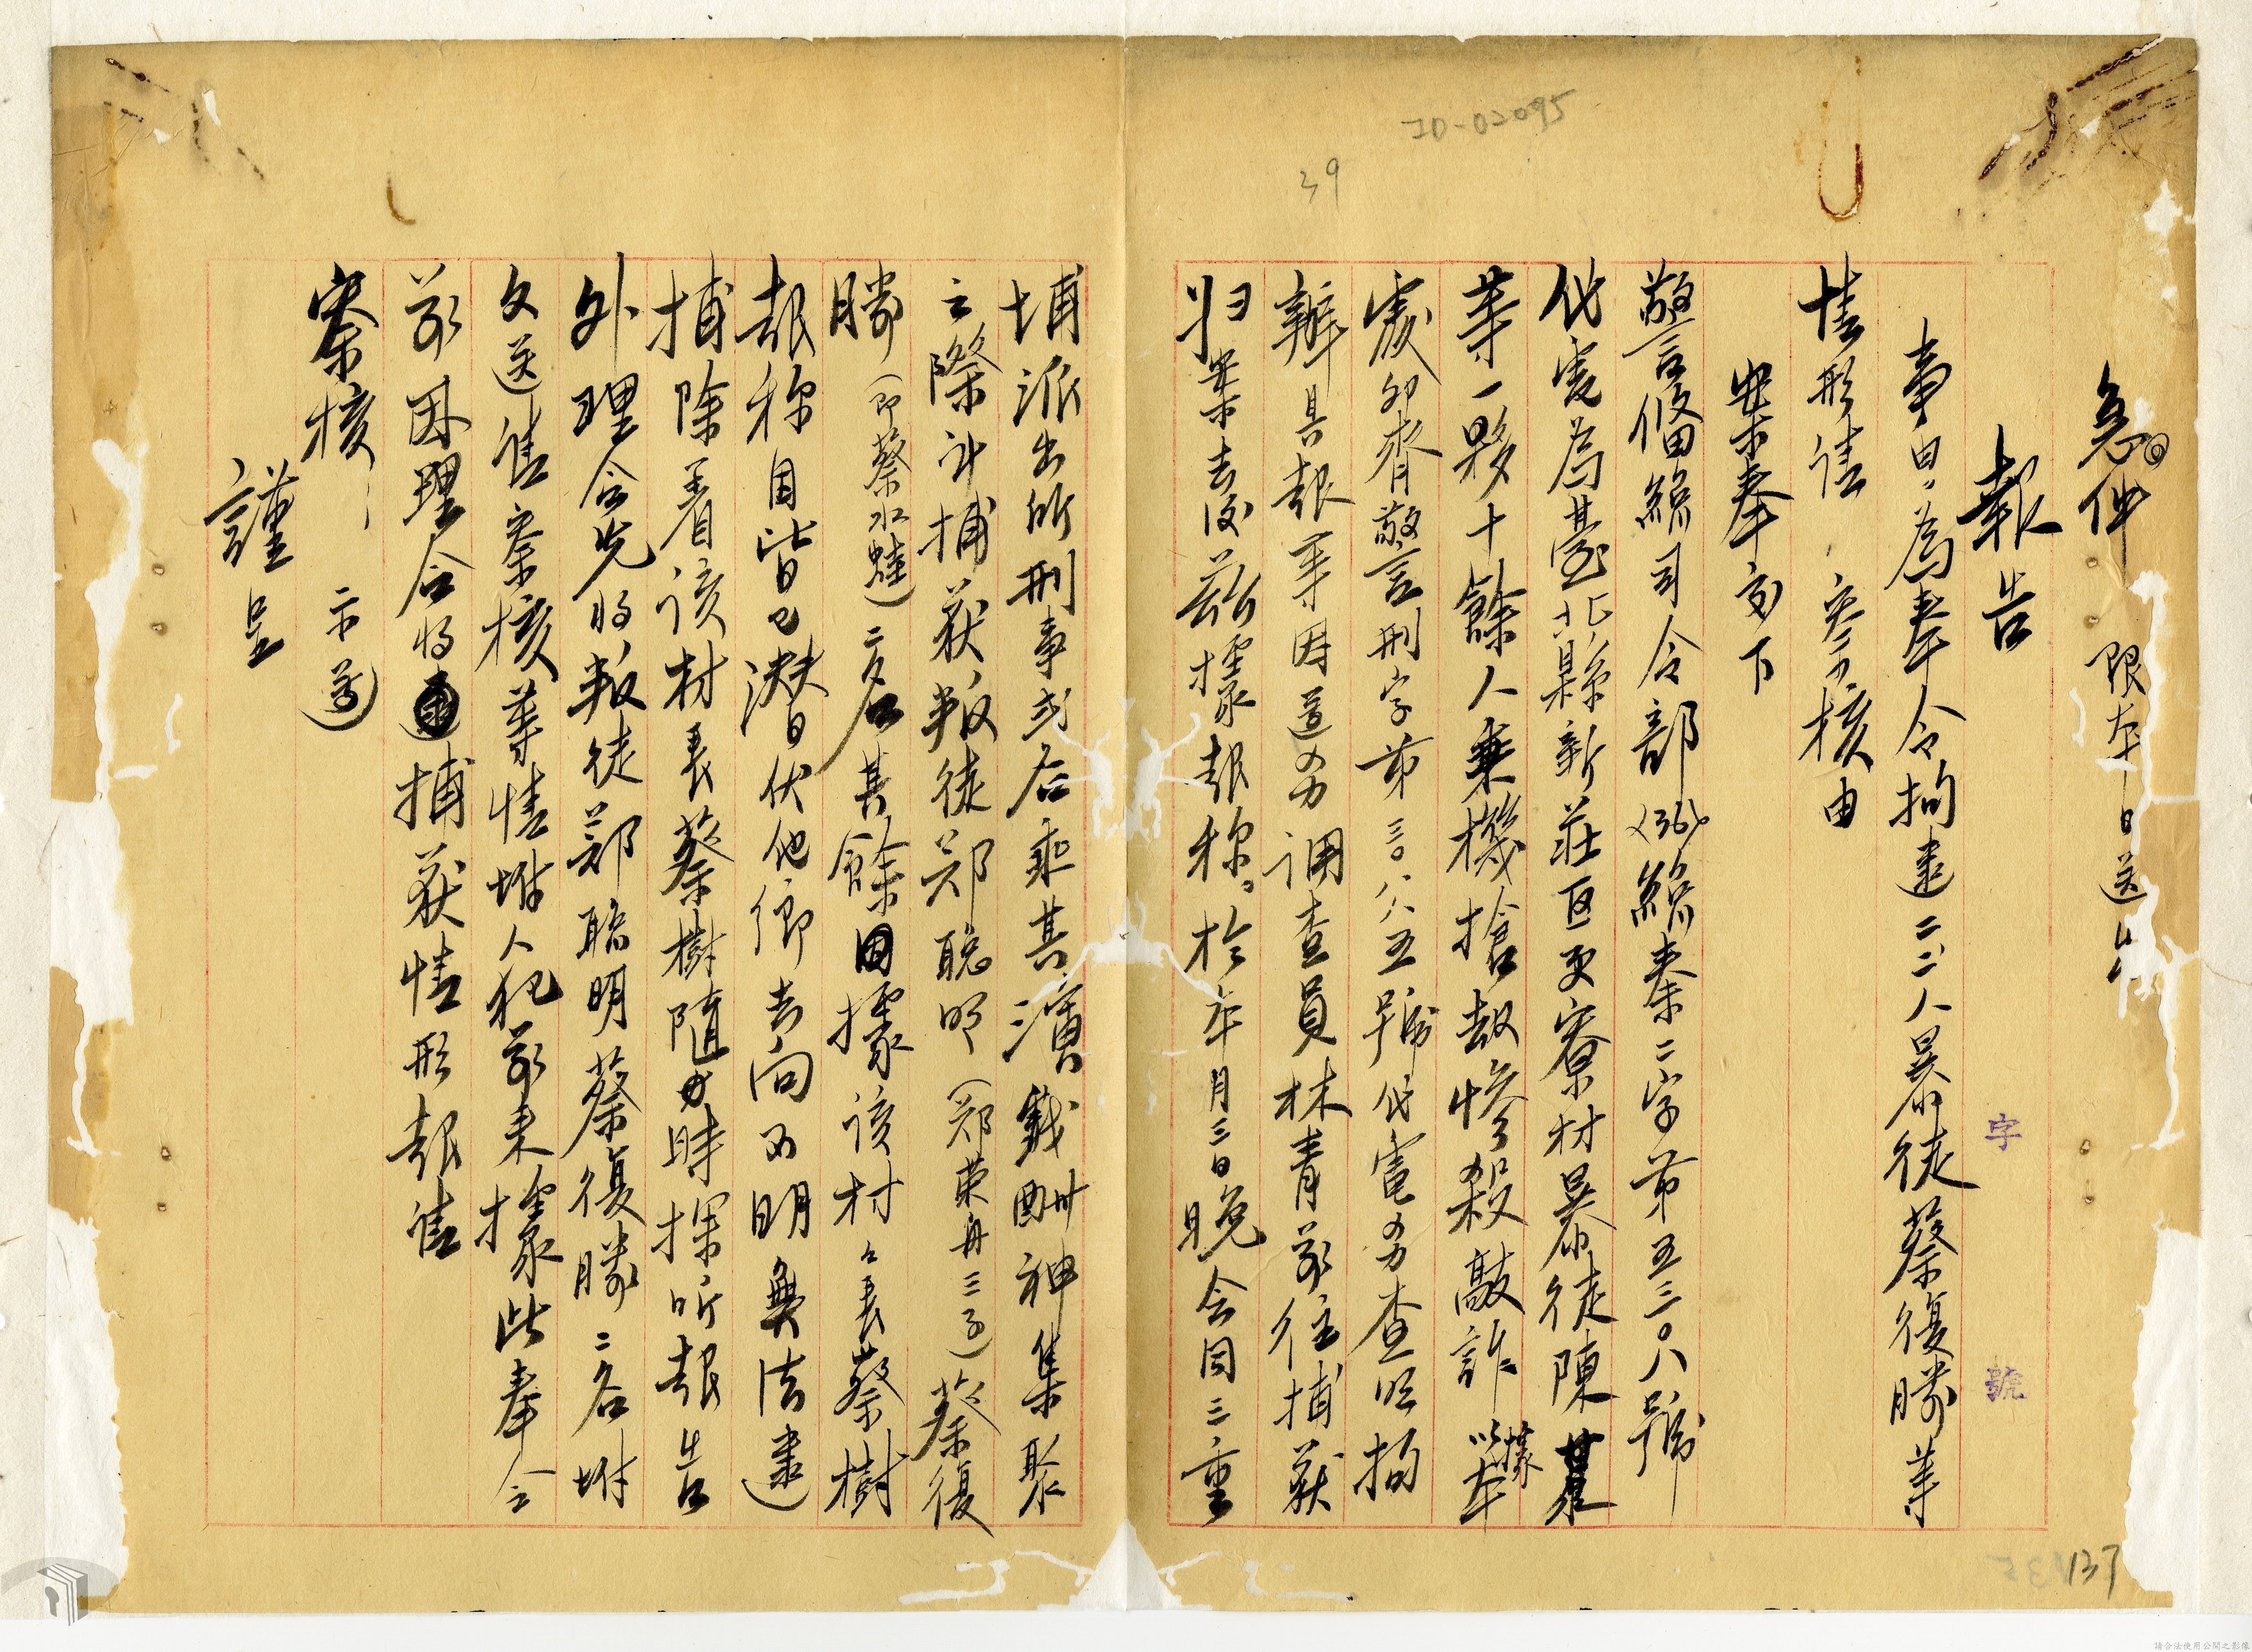 急件 限本日送出
報告
字 號
事由：為奉令拘逮二二八暴徒蔡復勝等
情形請 察核由
案奉交下
警備總司令部(36)總秦二字第五三〇八號
代電為臺北縣新莊区更寮村暴徒陳
等一夥十餘人乘機搶劫慘殺敲詐據
處卯齊警刑字第三〇八五號代電另查照拘
辦具報等因遵另調查員林青前往捕獲
归案去後茲據報称：於本年月三日晚会同三重
埔派出所刑事或名乘其演戲酬神集聚
之際計捕获叛徒郑聪明(郑荣舟三子)蔡復
勝(即蔡水蛙)二名其餘據該村々長蔡樹
報称目皆已潛伏他鄉去向不明無法逮
捕除着該村長蔡樹隨時探听報告
外理合先將叛徒鄭聪明蔡復勝二名附
文送請察核等情附人犯前来據此奉令
前因理合將捕获情形報請
察核 示遵
謹呈
JD-02095
39
137
請合法使用公開之影像